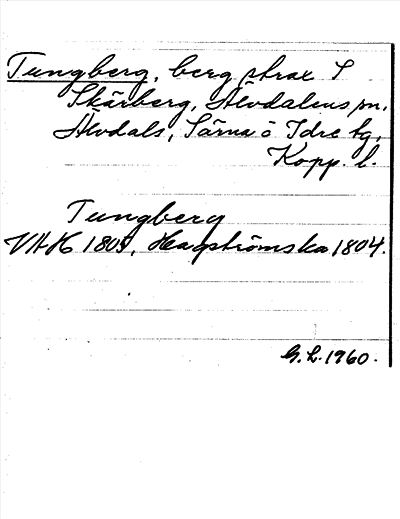 Tungberg, berg strax S
Skärberg, Älvdalens sn,
Älvdals, Särna o Idre tg,
Kopp. l.
Tungberg
VHK 1805, Hagströmska 1804.
G. L. 1960.